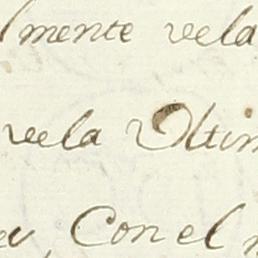 lmente vela
vela Oltim
Con el